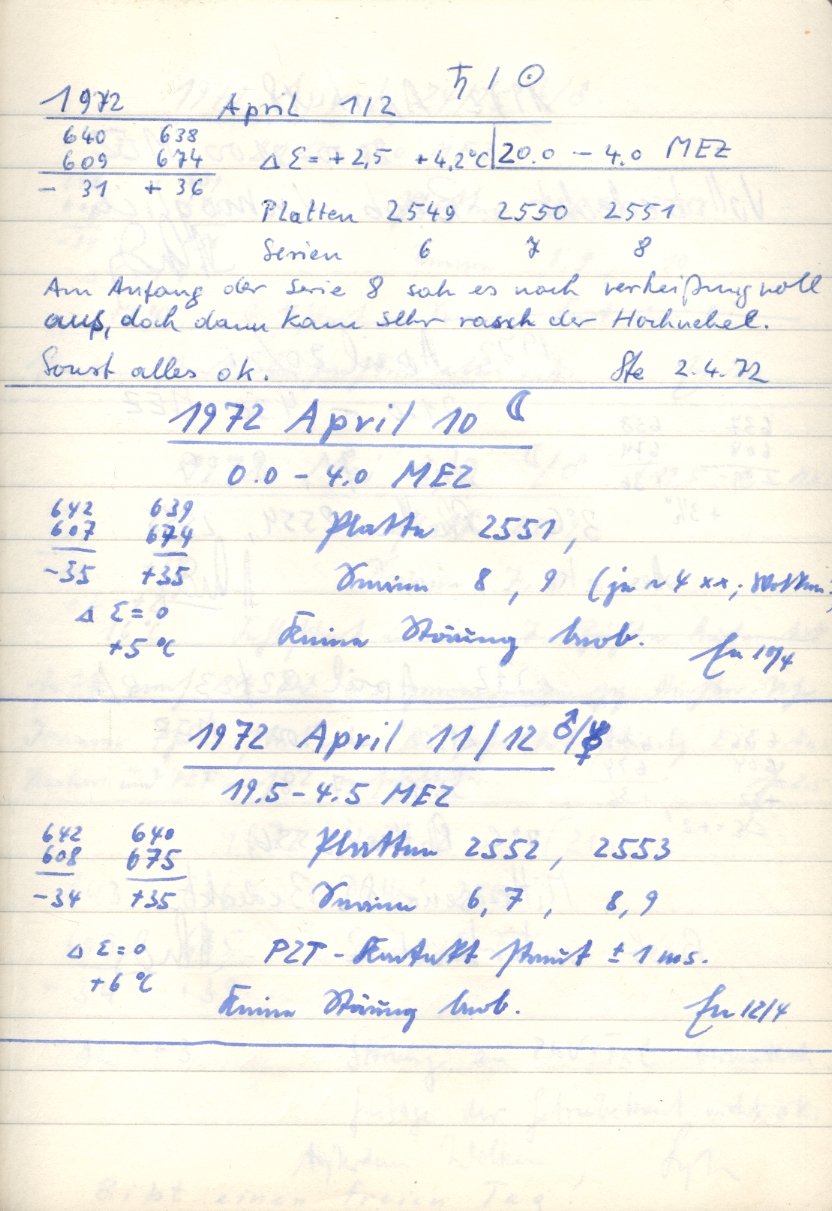 ♄ / ☉
1972 April 1/2
640 638
609 674 Δ Σ = +2,5 +4,2°C 20.0 – 4.0 MEZ
- 31 + 36
Platten 2549 2550 2551
Serien 6 7 8
Am Anfang der Serie 8 sah es noch verheißungvoll
aus, doch dann kam sehr rasch der Hochnebel.
Sonst alles ok. Ste 2.4.72
1972 April 10 ☾
0.0 – 4.0 MEZ
642 639
607 674 Platte 2551,
-35 +35 Serien 8, 9 (je ~ 4 xx; Wolken
Δ Σ = 0
+5 °C Keine Störung beob. 10/4
1972 April 11/12 ♂/☿
19.5 – 4.5 MEZ
642 640
608 675 Platten 2552, 2553
-34 +35 Serien 6,7, 8,9
Δ Σ = 0 PZT - Kontakt streut ± 1 ms.
+6 °C
Keine Störung beob. 12/4